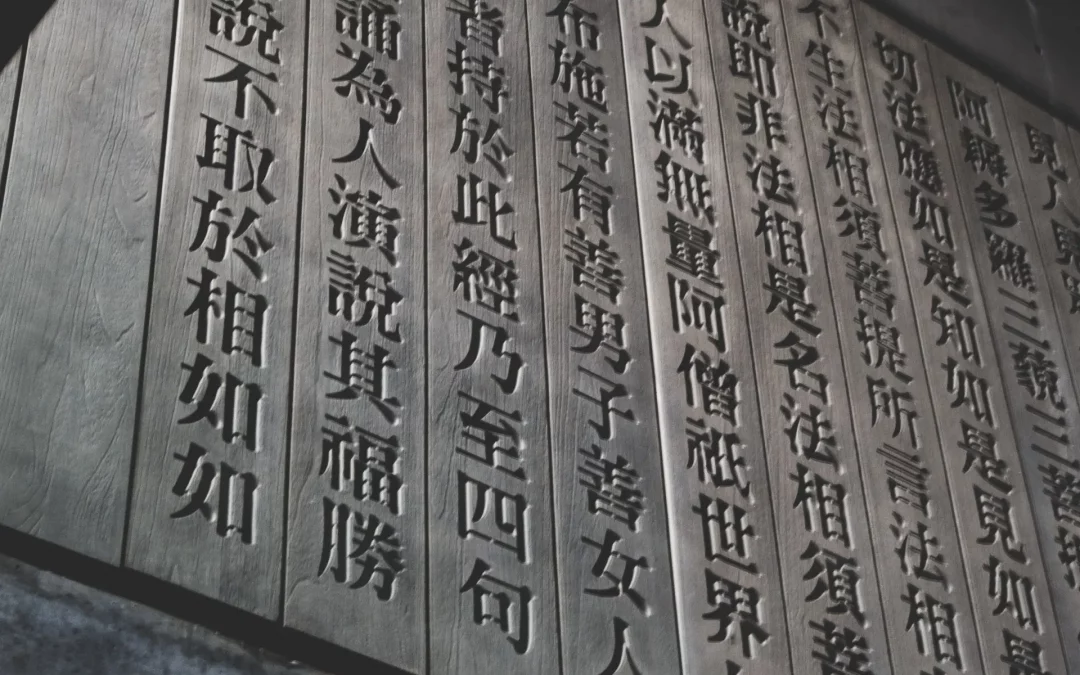 見人見
阿耨多羅三藐三菩
切法應如是知如是見如是
不生法相須菩提所言法相
說即非法相是名法相須菩
人以滿無量阿僧祇世界
布施若有善男子善女人
者持於此經乃至四句
誦為人演說其福勝
說不取於相如如